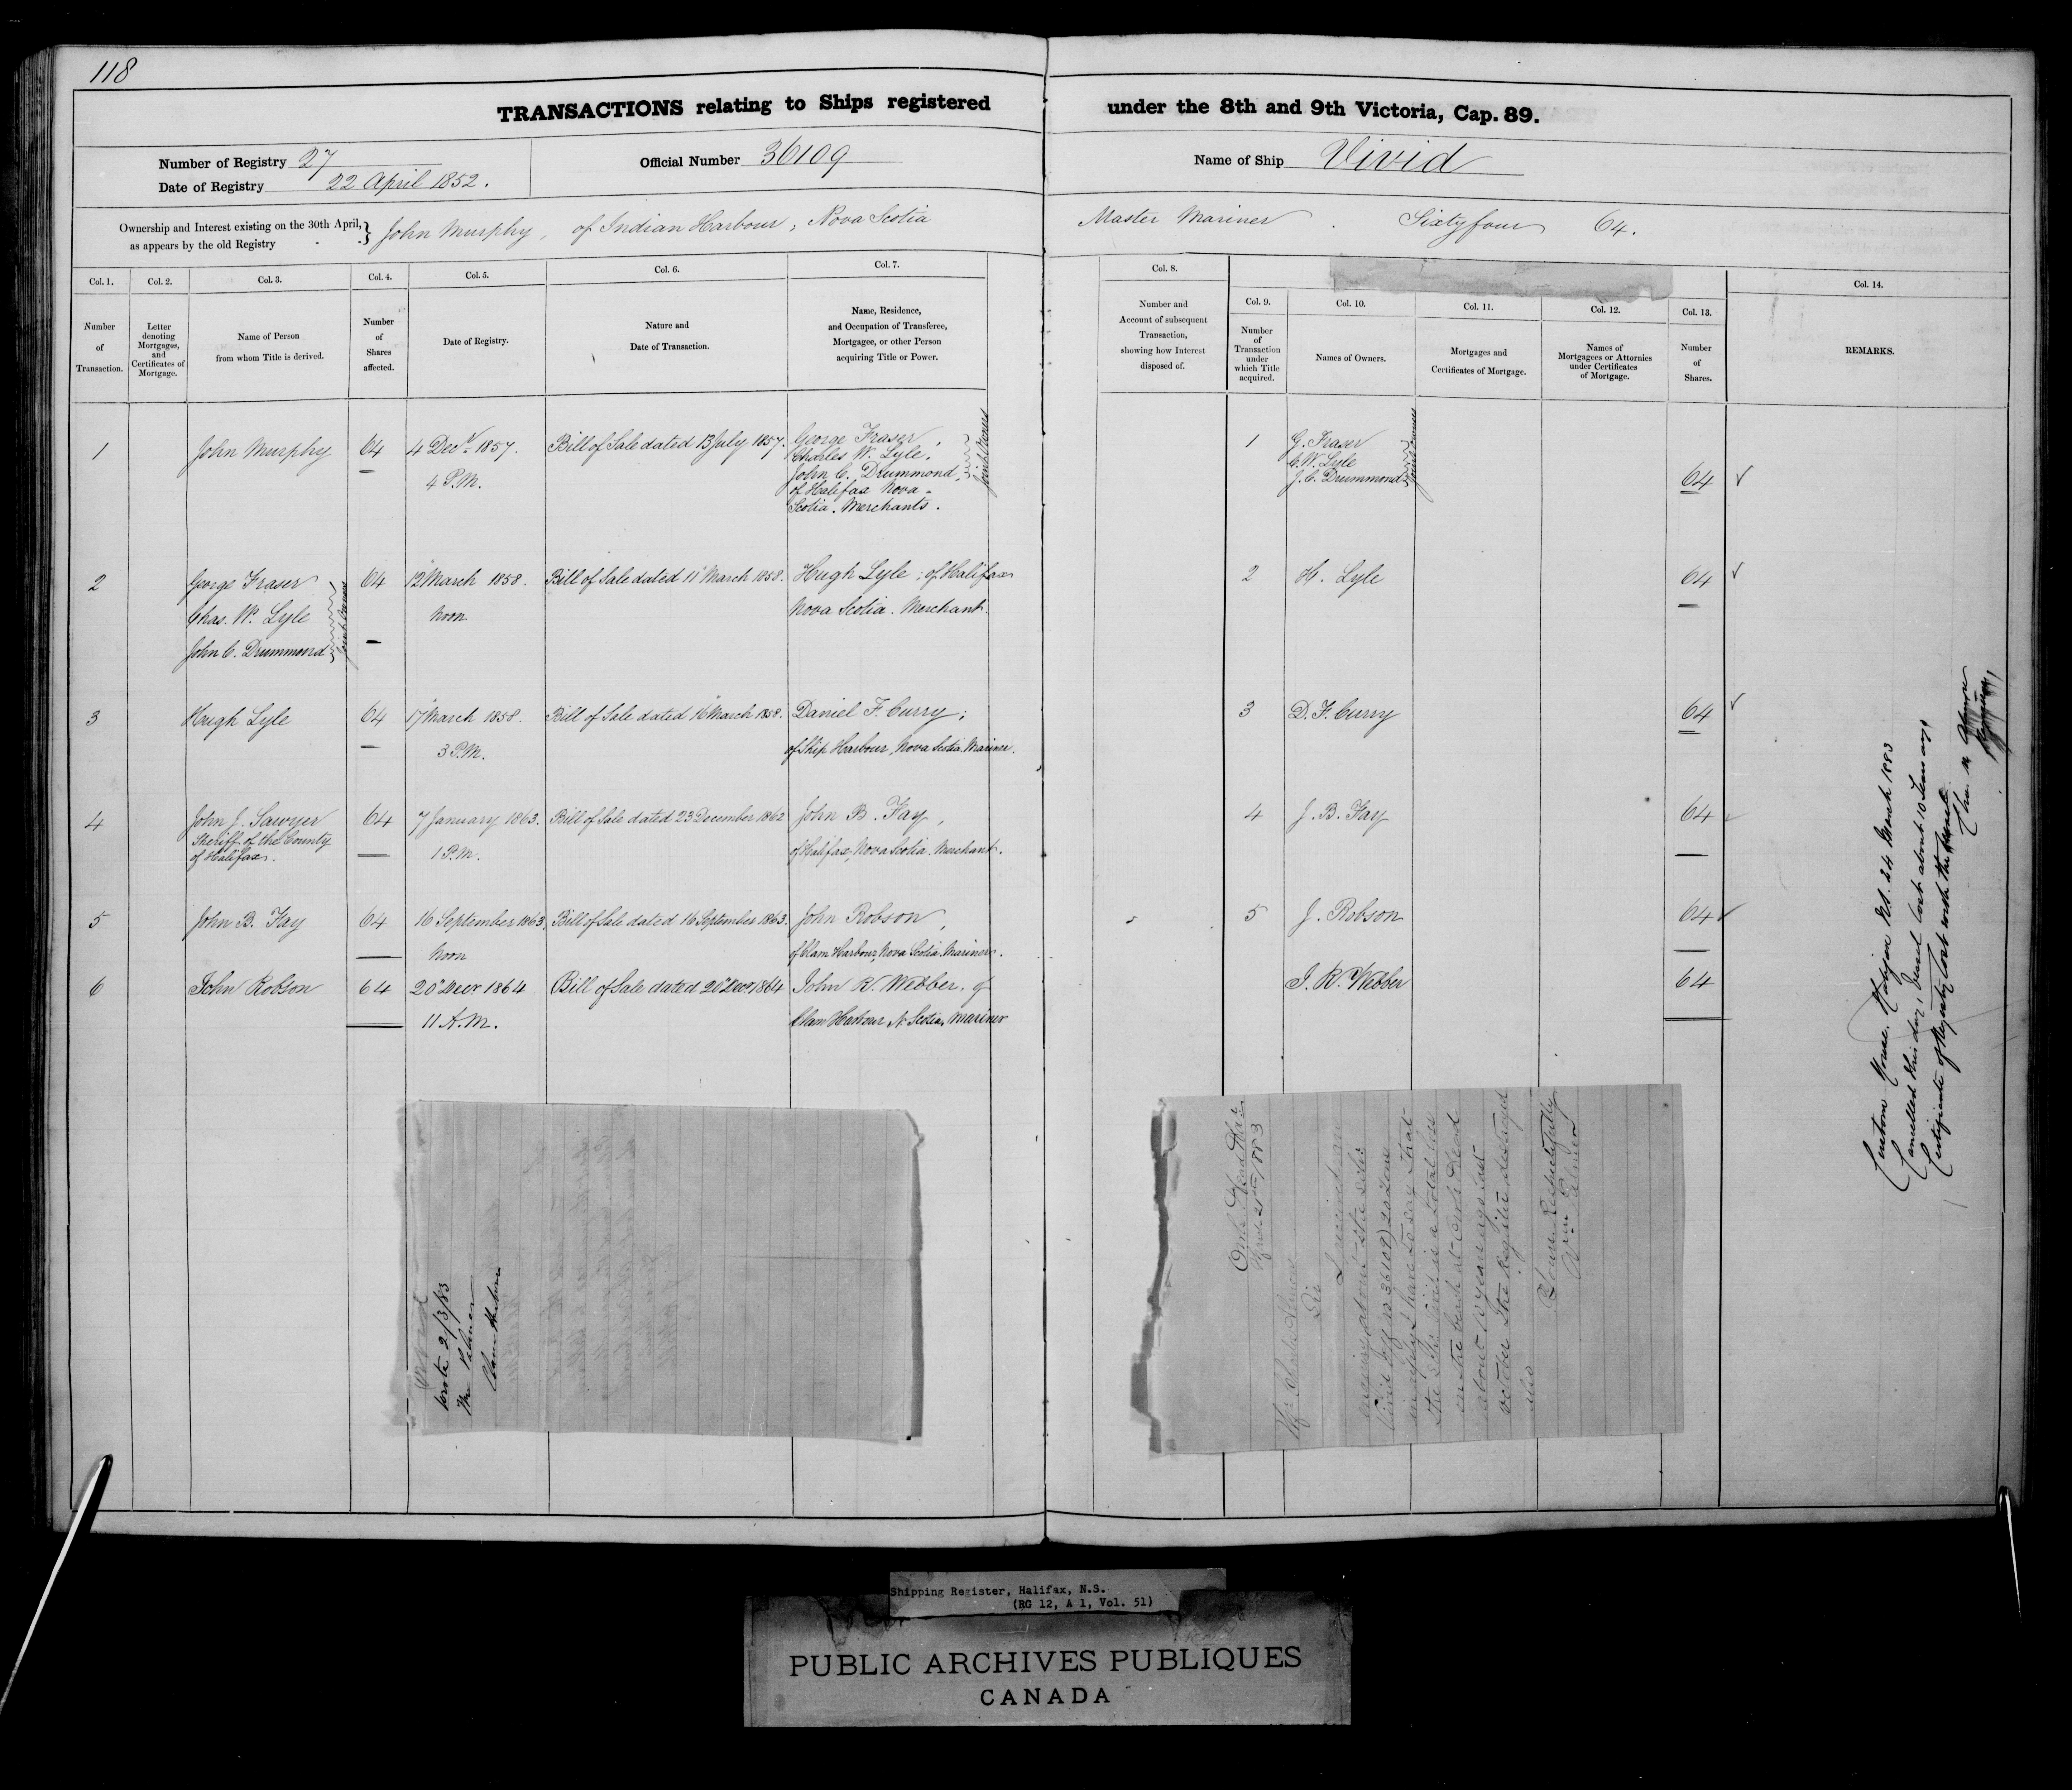 118
TRANSACTIONS relating to Ships registered under the 8th and 9th Victoria, Cap. 89.
Number of Registry 27
Date of Registry 22 April 1852.
Official Number 36109
Name of Ship Vivid
Ownership and Interest existing on the 30th April,
as appears by the old Registry
John Murphy, of Indian Harbour, Nova Scotia Master Mariner. Sixty four 64.
Col. 1. Col. 2. Col. 3. Col. 4. Col. 5. Col. 6. Col. 7. Col. 8.
Col. 9. Col. 10. Col. 11. Col. 12. Col. 13. Col. 14.
Number
of
Transaction.
Letter
denoting
Mortgages,
and
Certificates of
Mortgage.
Name of Person
from whom Title is derived.
Number
of
Shares
affected.
Date of Registry.
Nature and
Date of Transaction.
Name, Residence,
and Occupation of Transferee,
Mortgagee, or other Person
acquiring Title or Power.
Number and
Account of subsequent
Transaction,
showing how Interest
disposed of.
Number
of
Transaction
under
which Title
acquired.
Names of Owners.
Mortgages and
Certificates of Mortgage.
Names of
Mortgagees or Attornies
under Certificates
of Mortgage.
Number
of
Shares.
REMARKS.
1
John Murphy
64
4 Decr 1857.
4 P.M.
Bill of Sale dated 13 July 1857.
George Fraser,
Charles W. Lyle,
John C. Drummond,
of Halifax Nova
Scotia. Merchants.
Joint Owners
1
G. Fraser
C. W. Lyle
J. C. Drummond
Joint Owners
64
2
George Fraser
Chas. W. Lyle
John C. Drummond
Joint Owners
64
12 March 1858.
Noon
Bill of Sale dated 11 March 1858.
Hugh Lyle; of Halifax
Nova Scotia. Merchant.
2
H. Lyle
64
3
Hugh Lyle
64
17 March 1858.
3 P.M.
Bill of Sale dated 16 March 1858.
Daniel F. Curry;
of Ship Harbour, Nova Scotia. Mariner.
3
D. F. Curry
64
4
John J. Sawyer
Sheriff of the County
of Halifax.
64
7 January 1863.
1 P.M.
Bill of Sale dated 23 December 1862
John B. Fay,
of Halifax, Nova Scotia. Merchant.
4
J. B. Fay
64
5
John B. Fay
64
16 September 1863.
Noon
Bill of Sale dated 16 September 1863.
John Robson,
of Clam Harbour, Nova Scotia. Mariner.
5
J. Robson
64
6
John Robson
64
20 Decr 1864
11 A.M.
Bill of Sale dated 20 Decr 1864
John R. Webber. of
Clam Harbour N. Scotia, Mariner
J. R. Webber
64
Custom House. Halifax NS. 24 March 1883
Cancelled this day, Vessel lost about 10 Years ago,
Certificate of Registry lost with the vessel.
Vivid
Wrote 2/3/83
Wm Palmer
Clam Harbour
1883
Sir
I received an
enquiry about the Schr
Vivid off no 36109) 20 Tons
in reply I have to say that
the Schr Vivid is a total loss
on the beach at Owls Head
about 10 years ago last
October the Register destroyed
also
I remain Respectfully
Wm Palmer
Shipping Register, Halifax, N.S.
(RG 12, A 1, Vol. 51)
PUBLIC ARCHIVES PUBLIQUES
CANADA